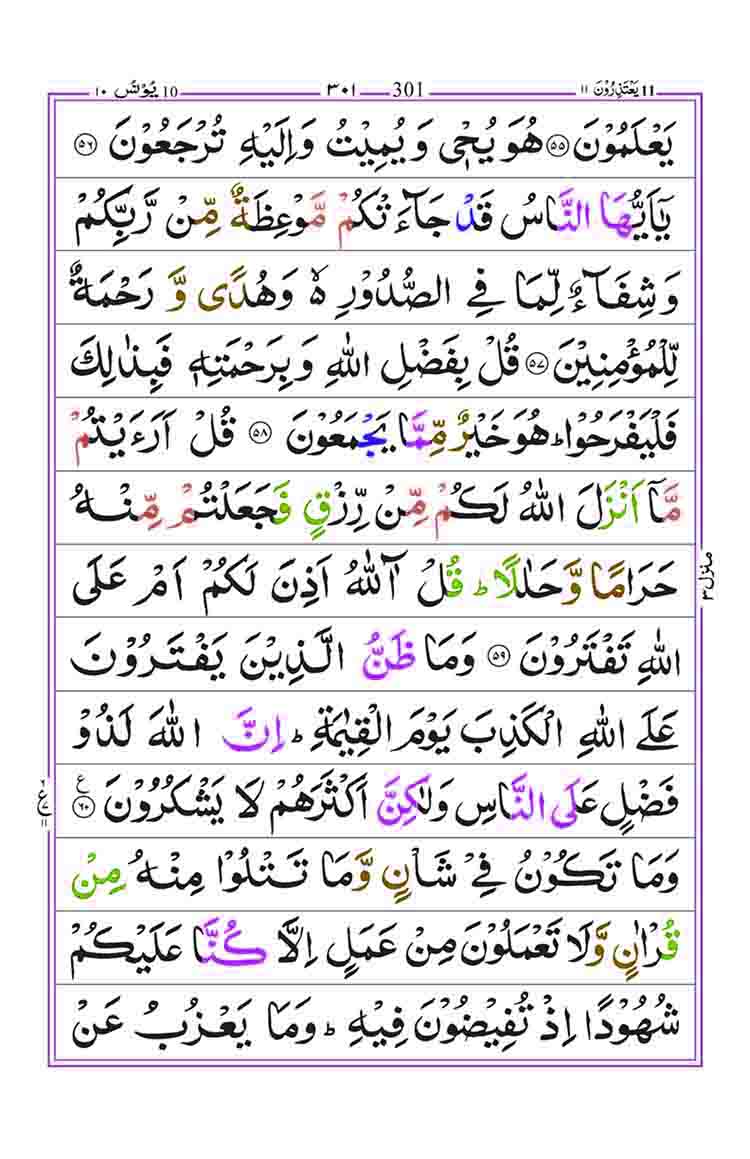 ۱۰ يُوْنُس 10 ۳۰۱ 301 يَعْتَذِرُوْنَ ۱۱ 11
يَعْلَمُوْنَ ۝۵۵ هُوَ يُحْيٖ وَ يُمِيْتُ وَ اِلَيْهِ تُرْجَعُوْنَ ۝۵۶
يٰۤاَيُّهَا النَّاسُ قَدْ جَآءَتْكُمْ مَّوْعِظَةٌ مِّنْ رَّبِّكُمْ
وَ شِفَآءٌ لِّمَا فِي الصُّدُوْرِ ۙ۬ وَ هُدًى وَّ رَحْمَةٌ
لِّلْمُؤْمِنِيْنَ ۝۵۷ قُلْ بِفَضْلِ اللّٰهِ وَ بِرَحْمَتِهٖ فَبِذٰلِكَ
فَلْيَفْرَحُوْا ؕ هُوَ خَيْرٌ مِّمَّا يَجْمَعُوْنَ ۝۵۸ قُلْ اَرَءَيْتُمْ
مَّاۤ اَنْزَلَ اللّٰهُ لَكُمْ مِّنْ رِّزْقٍ فَجَعَلْتُمْ مِّنْهُ
حَرَامًا وَّ حَلٰلًا ؕ قُلْ آٰللّٰهُ اَذِنَ لَكُمْ اَمْ عَلَى
اللّٰهِ تَفْتَرُوْنَ ۝۵۹ وَ مَا ظَنُّ الَّذِيْنَ يَفْتَرُوْنَ
عَلَى اللّٰهِ الْكَذِبَ يَوْمَ الْقِيٰمَةِ ؕ اِنَّ اللّٰهَ لَذُوْ
فَضْلٍ عَلَى النَّاسِ وَلٰكِنَّ اَكْثَرَهُمْ لَا يَشْكُرُوْنَ ۝۶۰ ع
وَ مَا تَكُوْنُ فِيْ شَاْنٍ وَّ مَا تَتْلُوْا مِنْهُ مِنْ
قُرْاٰنٍ وَّ لَا تَعْمَلُوْنَ مِنْ عَمَلٍ اِلَّا كُنَّا عَلَيْكُمْ
شُهُوْدًا اِذْ تُفِيْضُوْنَ فِيْهِ ؕ وَ مَا يَعْزُبُ عَنْ
منزل ۳
ع ۱۱